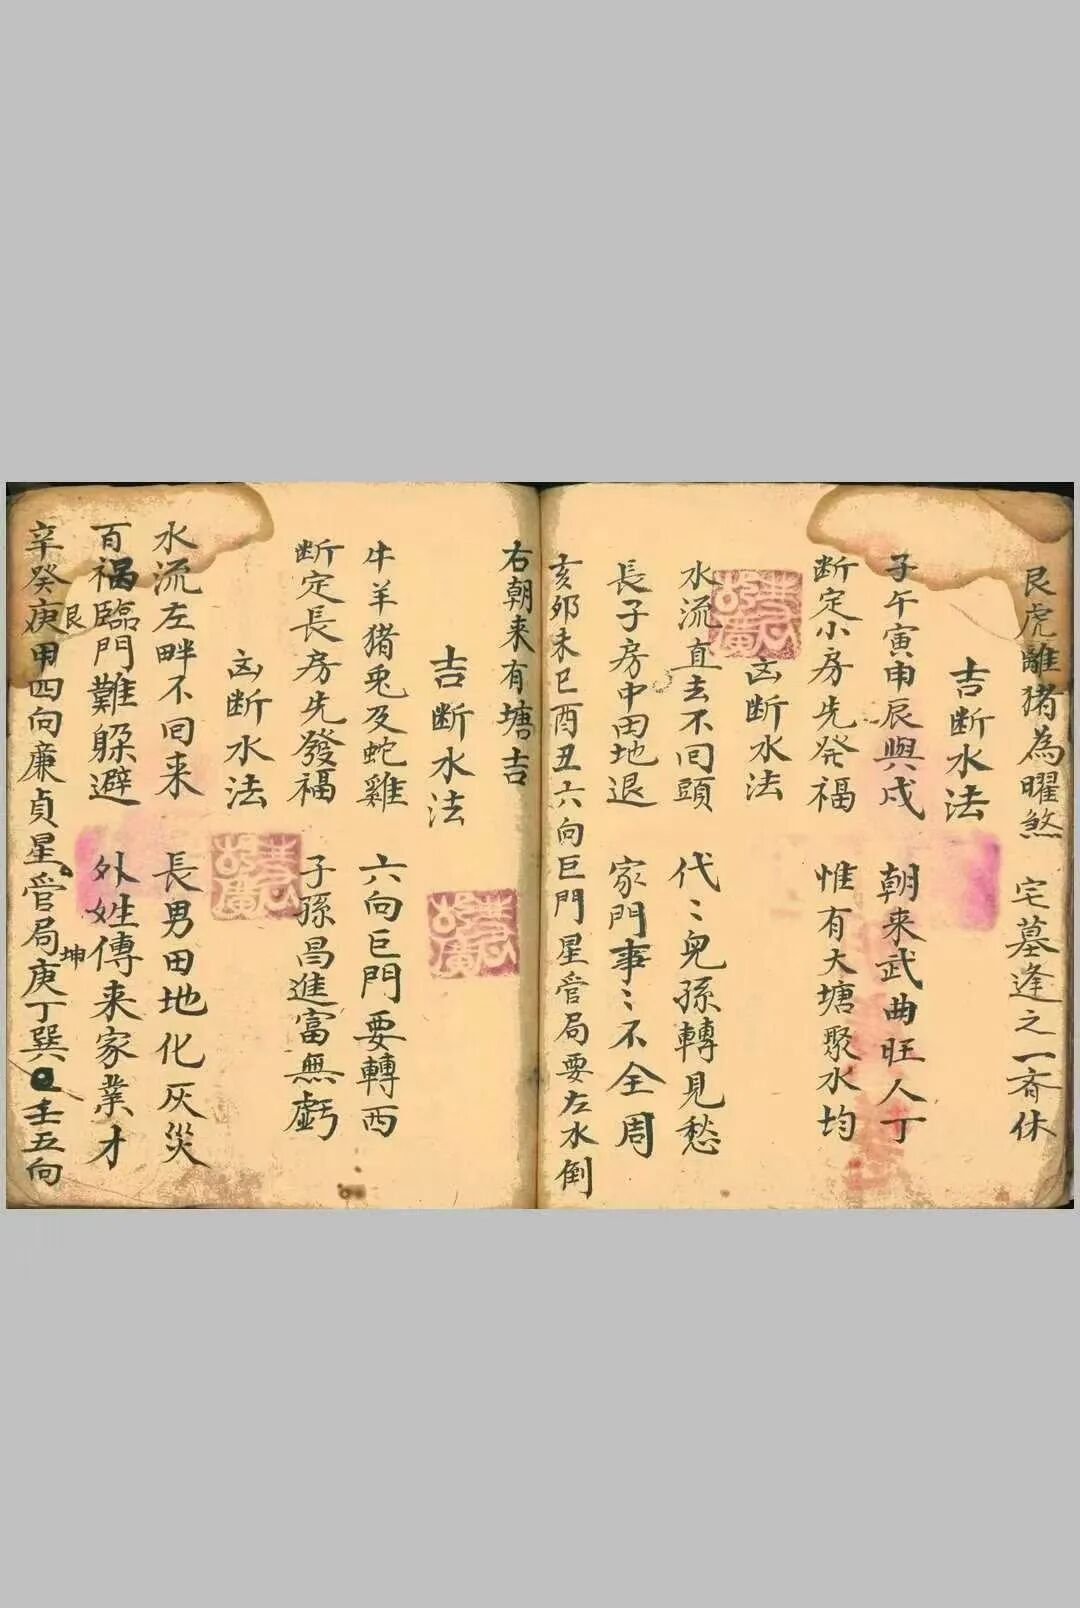 艮虎離猪為曜煞 宅墓逢之一斉休
吉断水法
子午寅申辰與戍 朝来武曲旺人丁
断定小房先発福 惟有大塘聚水均
凶断水法
水流直去不囬頭 代〻兒孫轉見愁
長子房中田地退 家門事〻不全周
亥卯未巳酉丑六向巨門星管局要左水倒
右朝来有塘吉
吉断水法
牛羊猪兎及蛇雞 六向巨門要轉西
断定長房先發福 子孫昌進富無虧
凶断水法
水流左畔不囬来 長男田地化灰災
百禍臨門難躲避 外姓傳来家業才
辛癸艮庚甲四向廉貞星管局坤庚丁巽壬五向